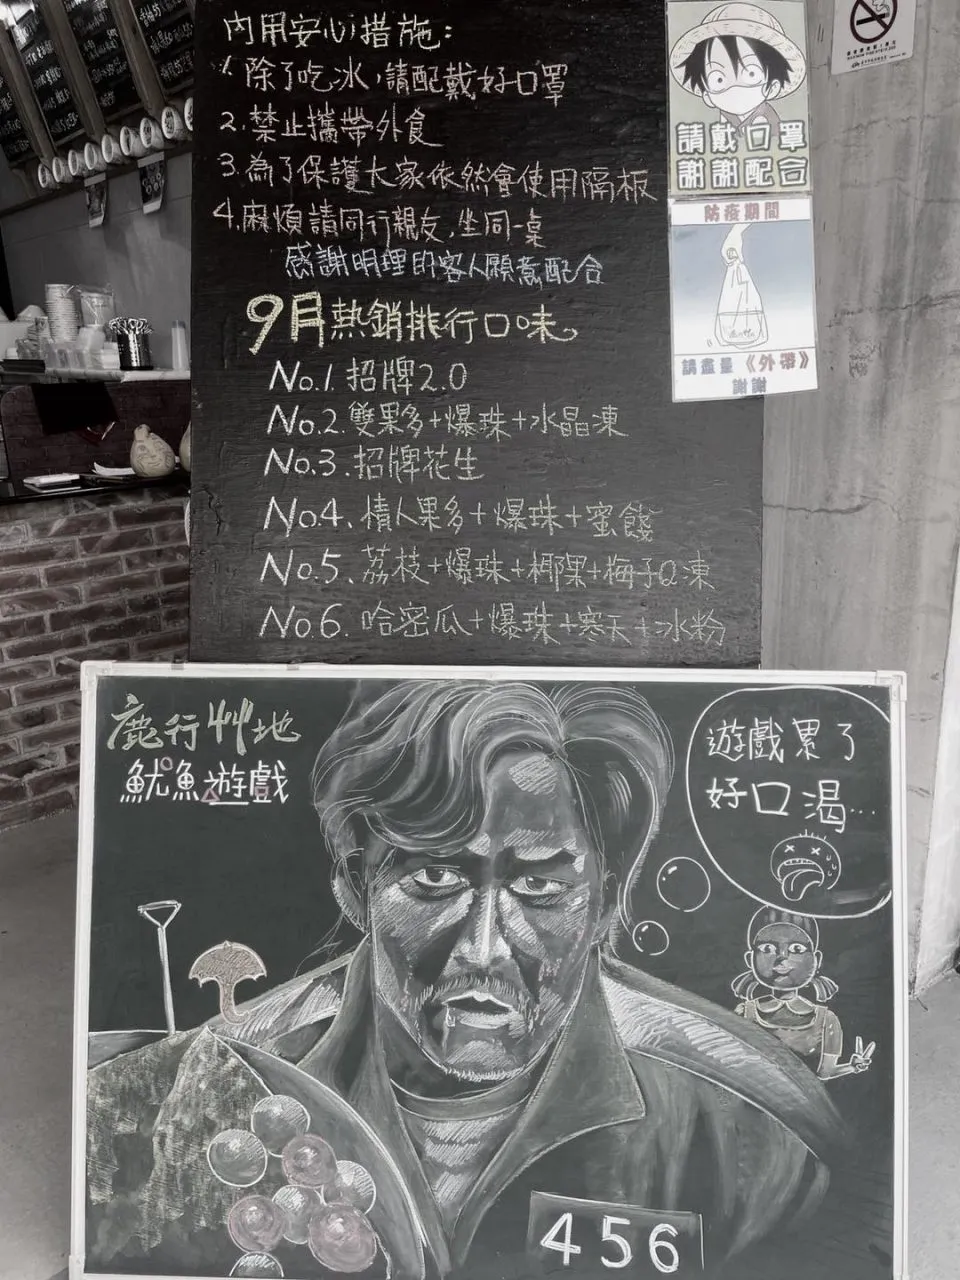 內用安心措施:
1.除了吃冰,請配戴好口罩
2.禁止攜帶外食
3.為了保護大家依然會使用隔板
4.麻煩請同行親友,坐同一桌
感謝明理的客人願意配合
9月熱銷排行口味
No.1.招牌2.0
No.2.雙果多+爆珠+水晶凍
No.3.招牌花生
No.4.情人果多+爆珠+蜜餞
No.5.荔枝+爆珠+椰果+梅子Q凍
No.6.哈密瓜+爆珠+寒天+冰粉
請戴口罩
謝謝配合
防疫期間
請盡量《外帶》
謝謝
鹿行艸地
魷魚遊戲
遊戲累了
好口渴...
456